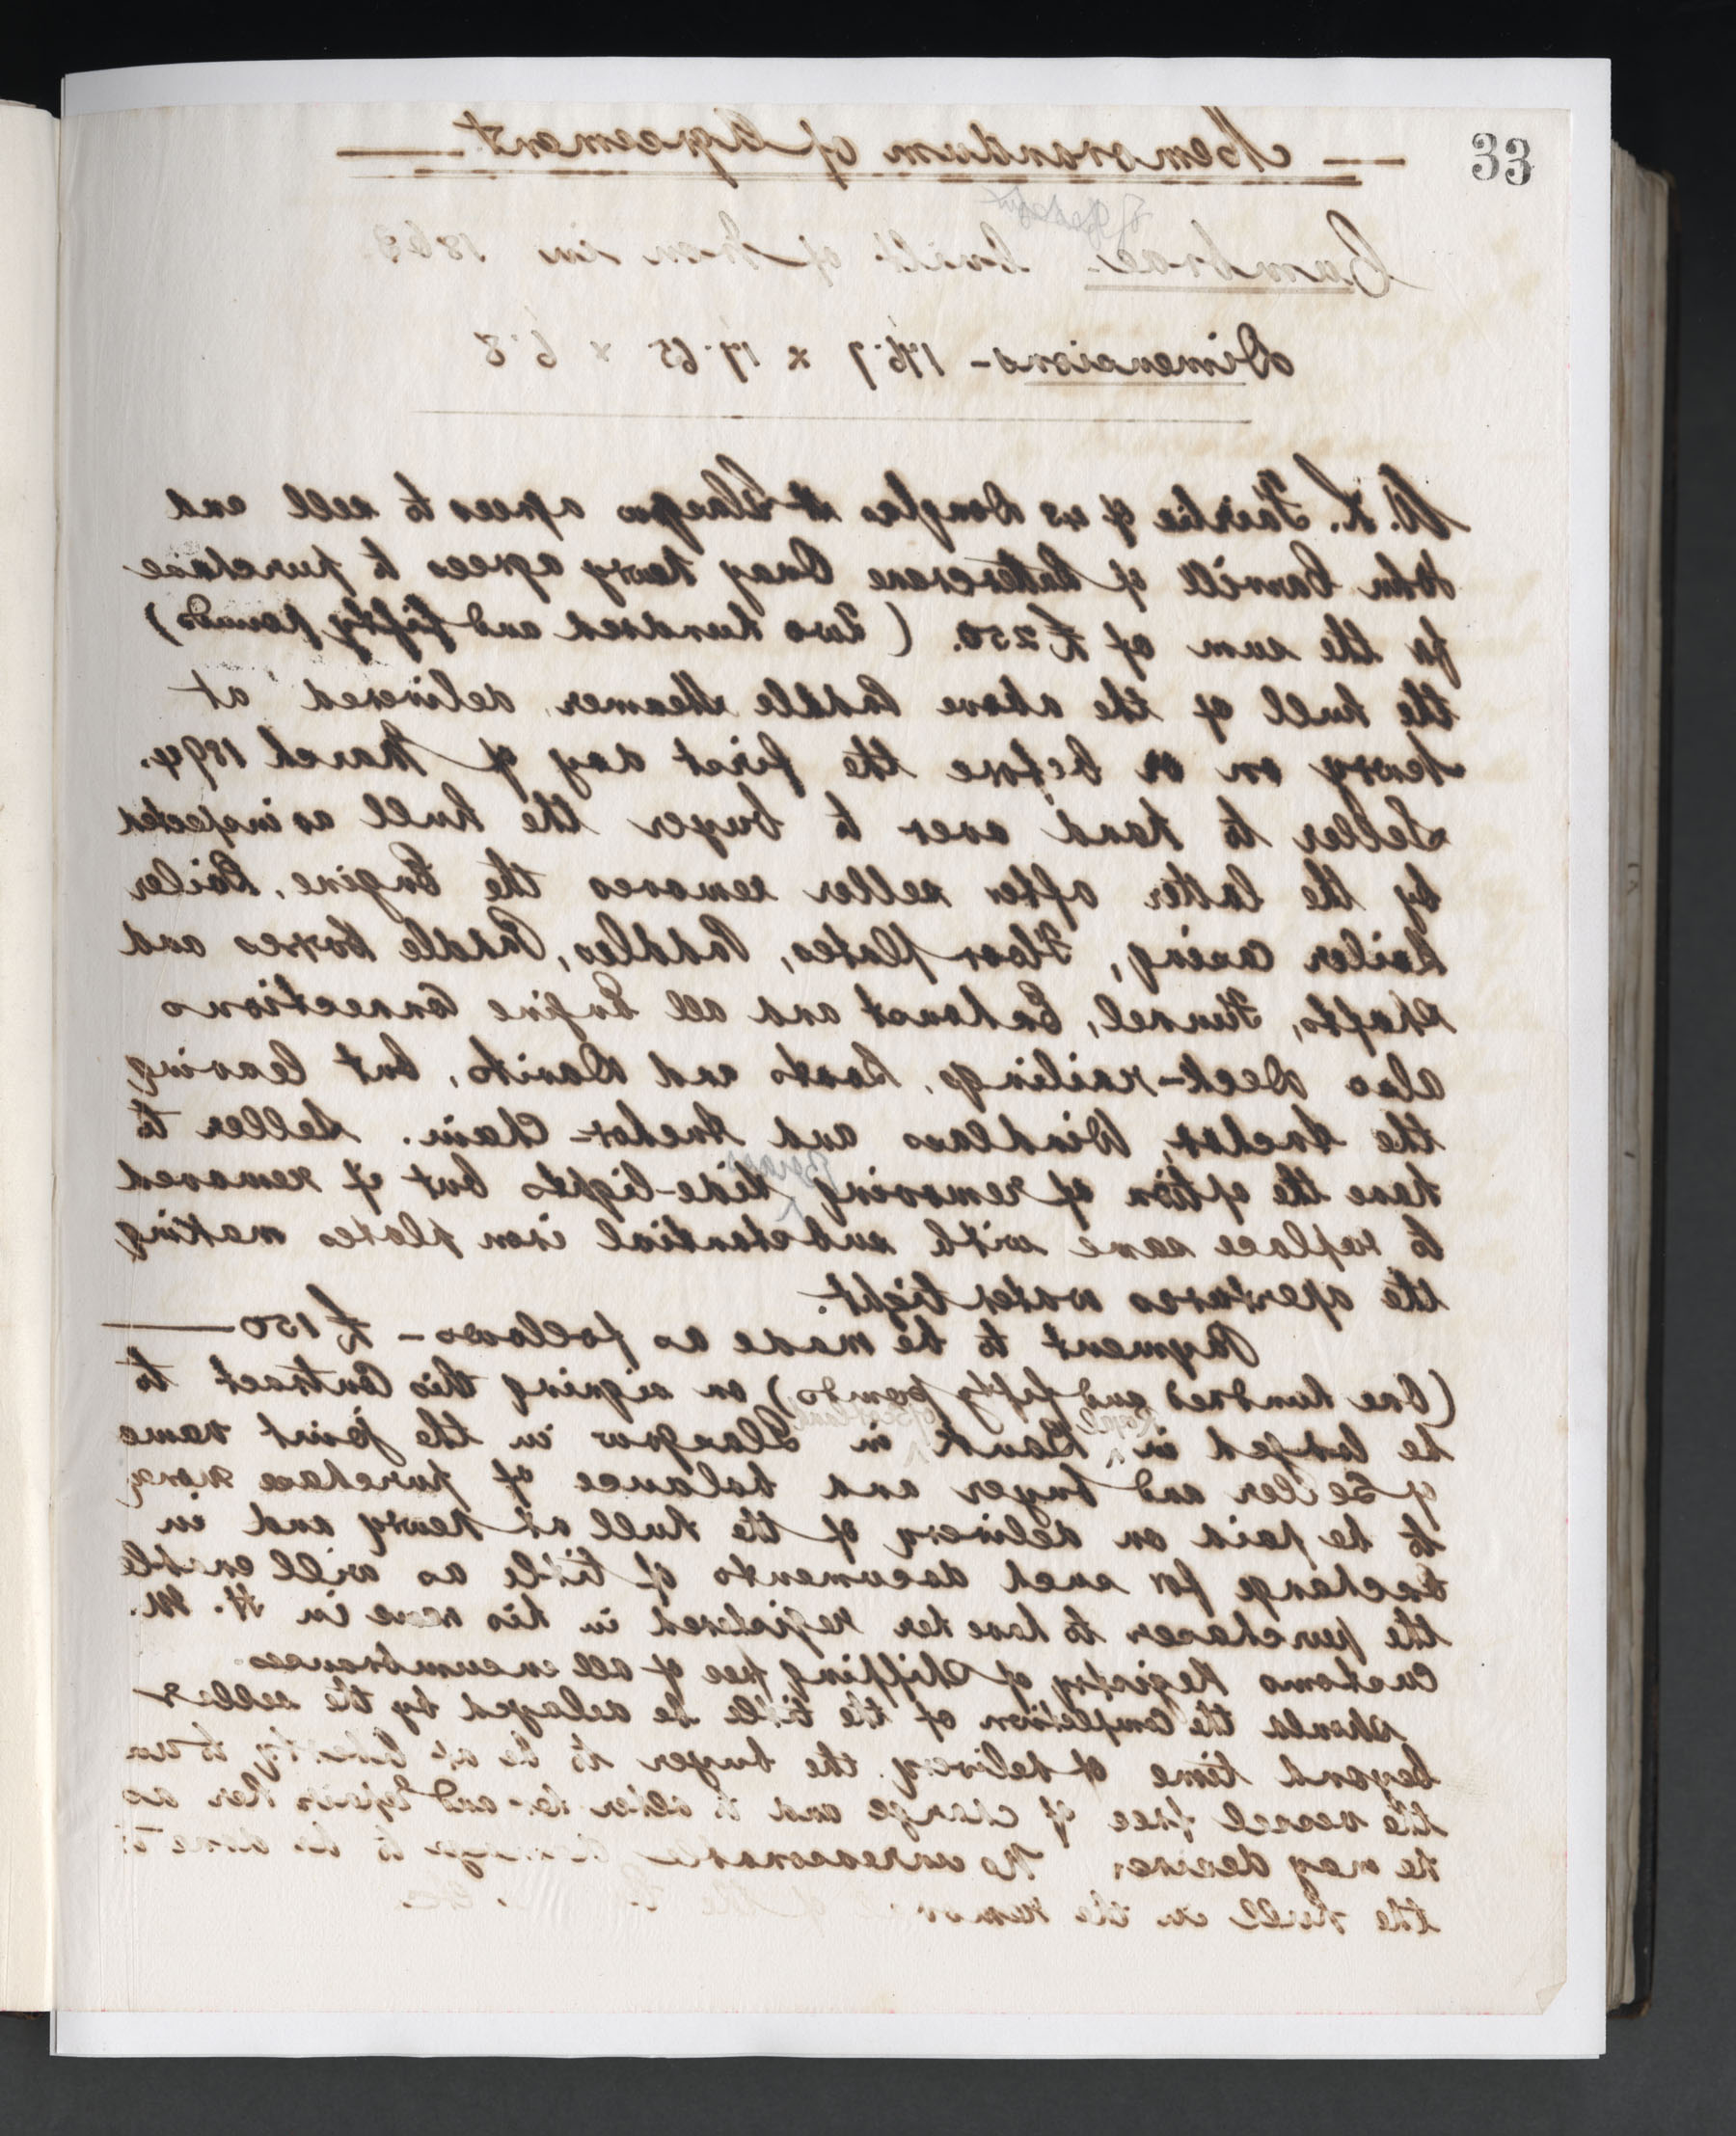 33
— Memorandum of Agreement —
Cumbrae. built of Iron in 1863.
Dimensions - 146.7 x 17.65 x 6.8
M. K. Fairlie of 48 Douglas St Glasgow agrees to sell and
John Carvill of Buttercrane Quay Newry agrees to purchase
for the sum of £250. (Two hundred and fifty pounds)
the hull of the above Paddle Steamer, delivered at
Newry on or before the first day of March 1894.
Seller to hand over to buyer the hull as inspected
by the latter after seller removes the Engine, Boiler
Boiler casing, Floor plates, Paddles, Paddle boxes and
Shafts, Funnel, Exhaust and all Engine Connections
also Deck-railings, boats and Davits, but leaving
the Anchor, Windlass and Anchor-Chain. Seller to
have the option of removing Brass Side-lights but if removed
to replace same with substantial iron plates making
the apertures water tight.
Payment to be made as follows - £150 —
(One hundred and fifty pounds) on signing this Contract to
be lodged in Royal Bank of Scotland in Glasgow in the joint name
of Seller and buyer and balance of purchase money
to be paid on delivery of the hull at Newry and in
exchange for such documents of title as will enable
the purchaser to have her registered in his name in H. M.
Customs Registry of Shipping free of all incumbrances.
Should the Completion of the title be delayed by the seller
beyond time of delivery the buyer to be at liberty to use
the vessel free of charge and to alter her and repair her as
he may desire. No unreasonable damage to be done to
the hull in the removal of the